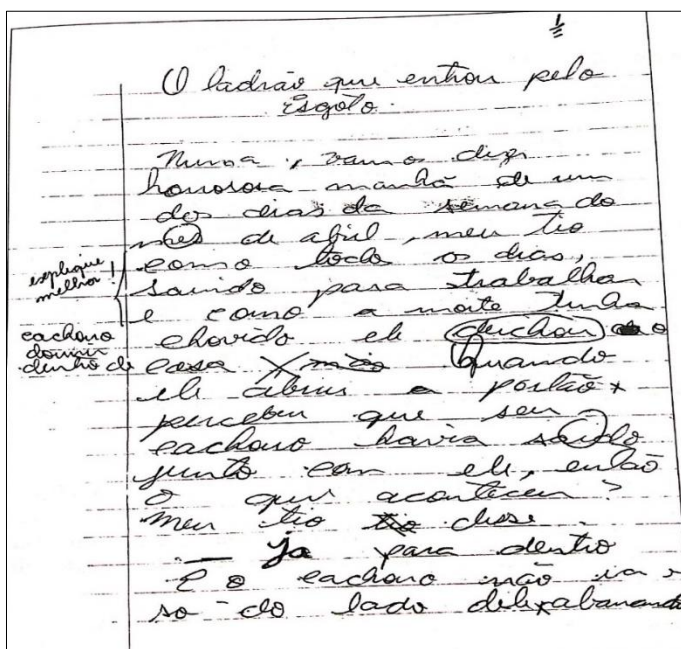 O ladrão que entrou pelo
Esgoto.
Numa, vamos dizer
honrosa manhã de um
dos dias da semana do
mes de abril, meu tio
como todo os dias,
saindo para trabalhar
e como a noite tinha
chovido ele deichou o
casa Quando
ele abriu o portão
percebeu que seu
cachorro havia saido
junto com ele, então
o que aconteceu?
meu tio disse
— ja para dentro
E o cachorro não ia,
so do lado dele abanando
explique
melhor!
cachorro
dormir
dentro de